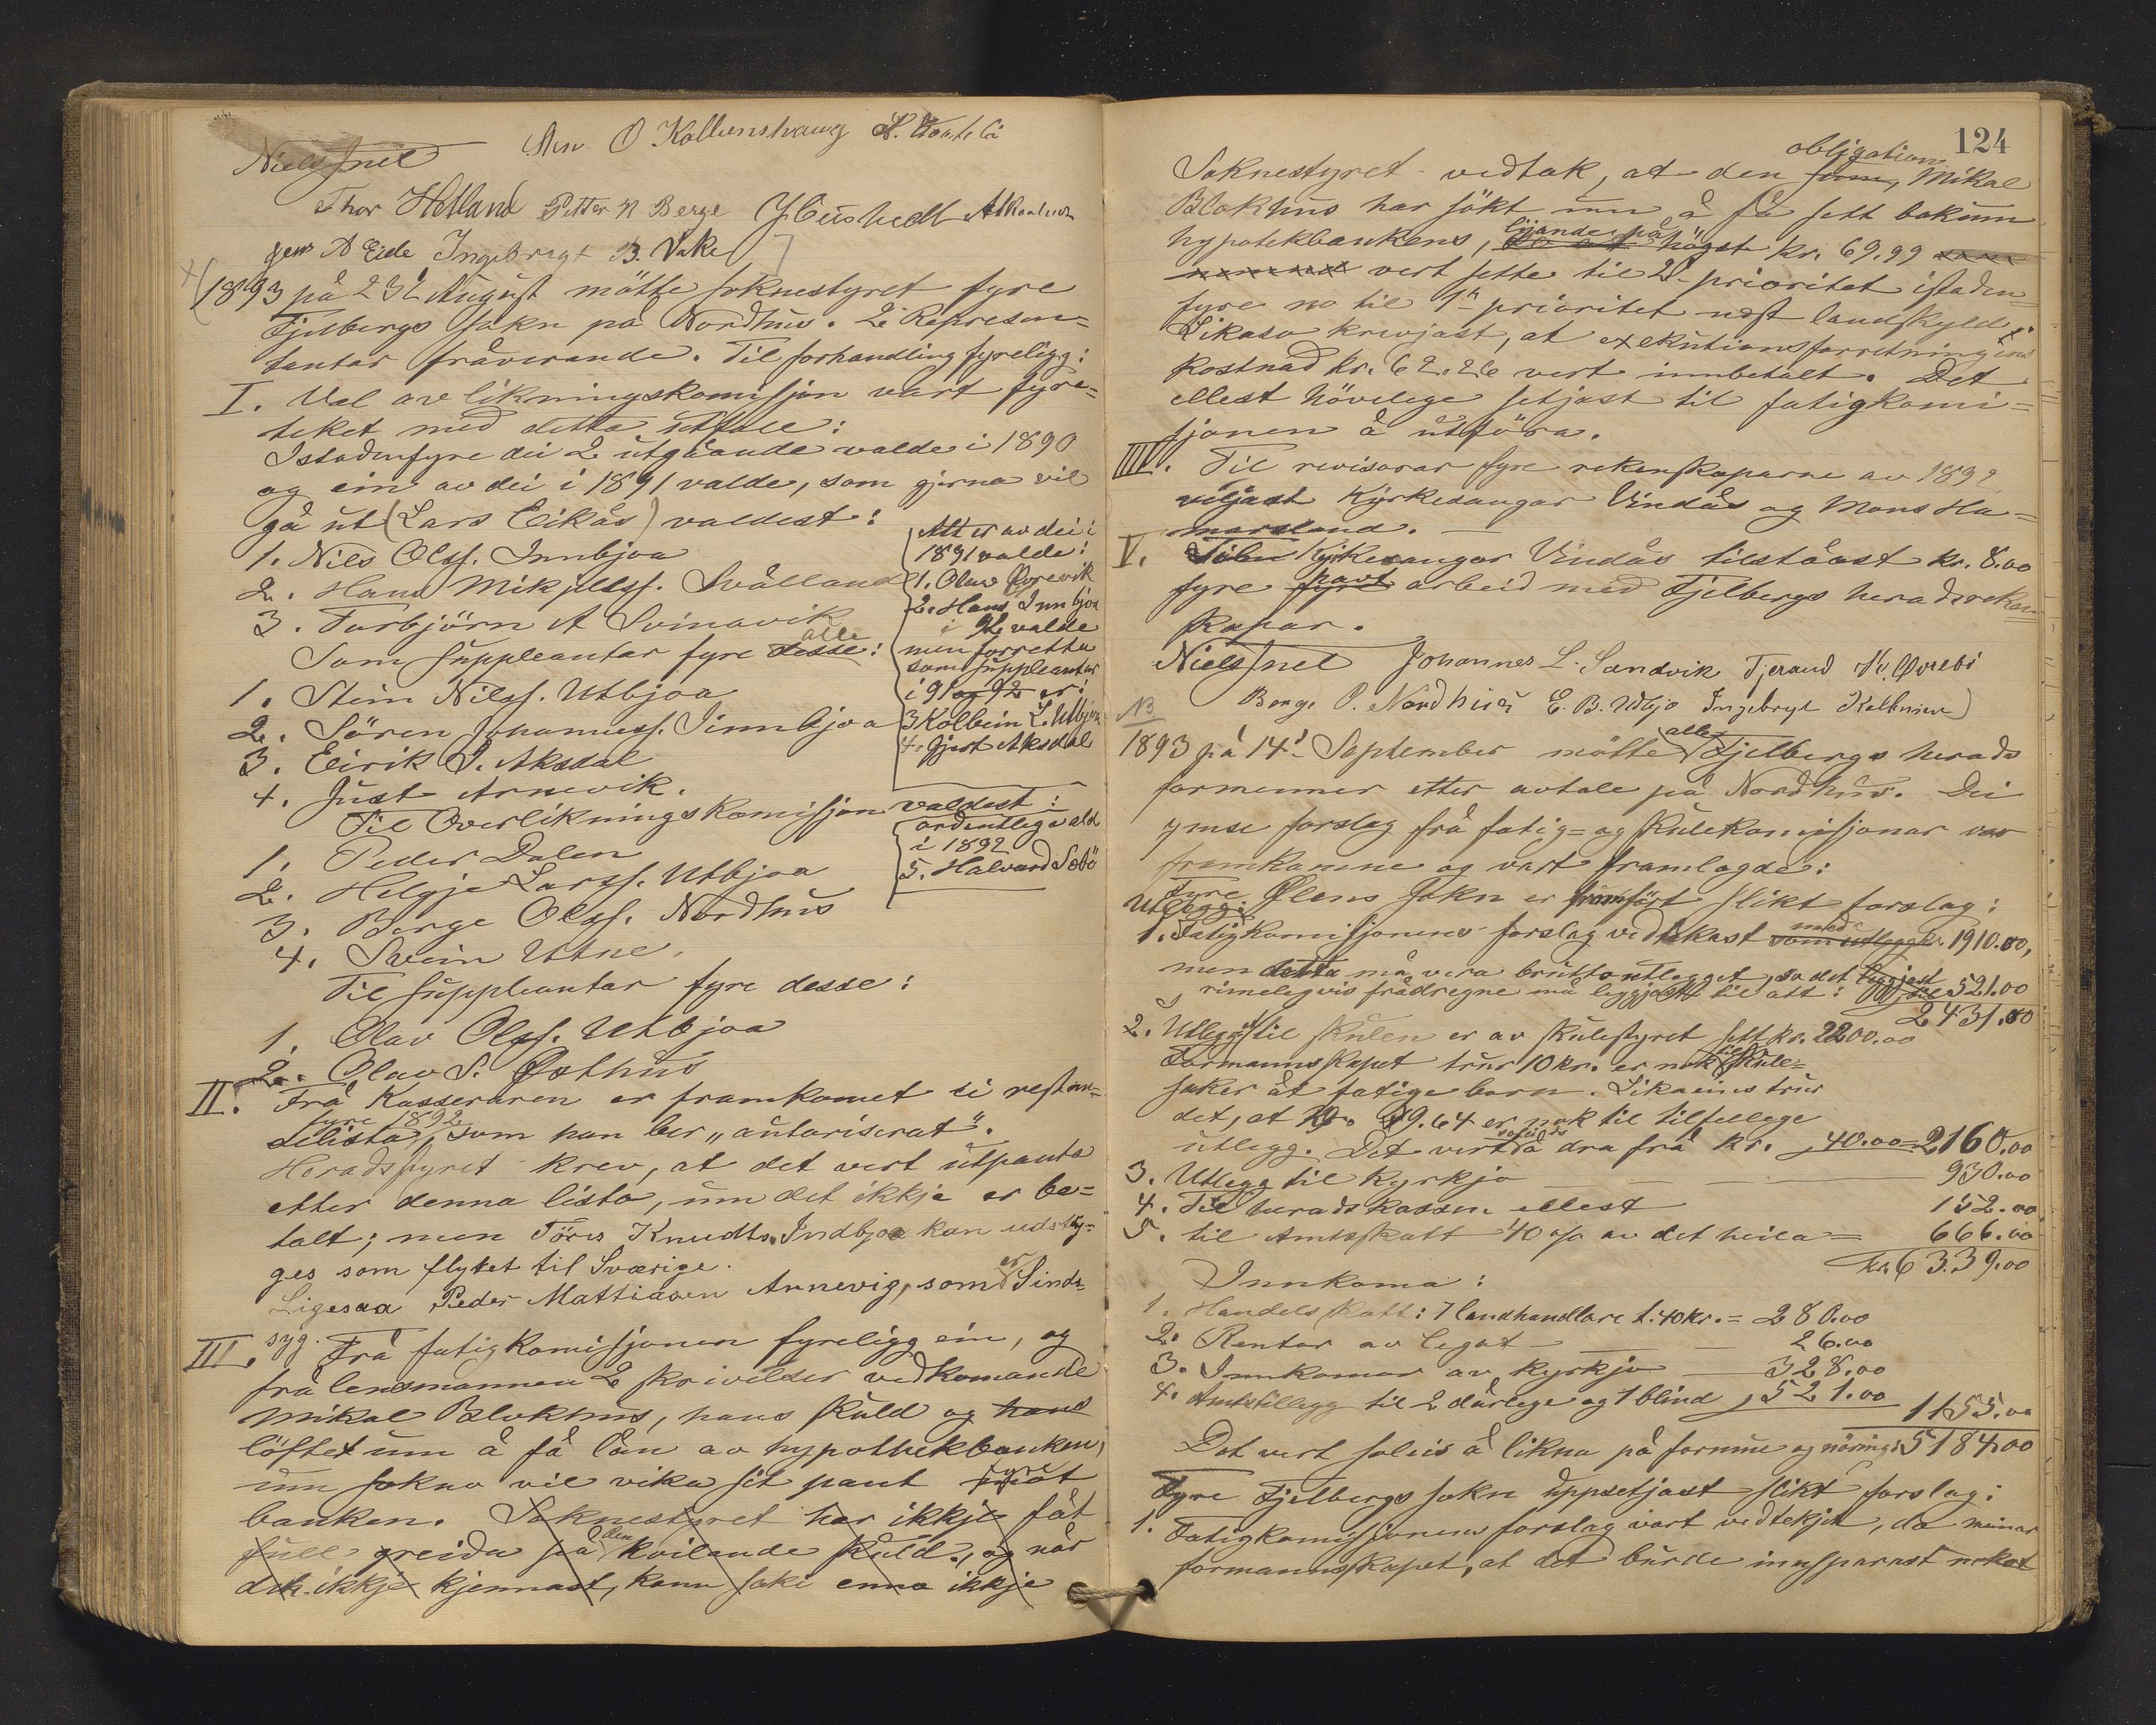 Niels Juel
Thor Helland Petter N Berge
Jens A Eide Ingebrigt B. Vake
1893 på 23d August mötte soknestyret fyre
Fjelbergs sokn på Nordhus. 2 Represen=
tantar fråverande. Til forhandling fyreligg:
I. Val av likningskomisjon vart fyre=
teket med detta utfall:
Istadenfyre dei 2 utgåande valde i 1890
og ein av dei i 1891 valde, som gjerna vil
gå ut (Lars Eikås) valdest:
1. Nils Olss. Innbjoa
2. Hans Mikjelss. Svålland
3. Torbjörn A Svinavik
Som suppleantar fyre desse alle:
1. Stein Nilss. Utbjoa
2. Sören Johanness. Innbjoa
3. Eirik S. Aksdal
4. Just Arnevik.
Att er av dei i
1891 valde:
1. Olav Øvrevik
2. Hans Innbjoa
i 92 valde
men forretta
som suppleantar
i 91 og 92 er:
3 Kolbein L. Utbjoa
4. Gjert Aksdal
Til Overlikningskomisjon valdest:
1. Peder Dalen
2. Helgje Larss. Utbjoa
3. Berge Olss. Nordhus
4. Svein Utne.
ordentleg vald
i 1892
5. Halvard Sæbö
Til suppleantar fyre desse:
1. Olav Olss. Utbjoa
2. Olav S. Østhus
II. Frå Kasseraren er framkomet ei restan=
selista fyre 1892, som han ber "autoriserat".
Heradsstyret krev, at det vert utpanta
etter denna lista, um det ikkje er be=
talt; men Töres Knudts. Indbjoa kan udsty=
ges som flyttet til Sværige.
Ligesaa Peder Mattiasen Arnevig, som er Sinds=
syg.
III. Frå fatigkomisjonen fyreligg ein, og
frå lensmannen 2 skrivelser vedkomande
Mikal Blokhus, hans skuld og hans
löftet um å få lån av hypothekbanken,
um sokna vil vika sit pant fyre
banken. Soknestyret har ikkje fåt
full greida på den kvilande skuld, og når
dek ikkje kjennast, kann saki enno ikkje
124
Soknestyret vedtok, at den obligation, Mikal
Blokhus har sökt um å få sett bakum
hypotekbankens, lydande på högst kr. 69.99
vert sette til 2 prioritet istaden=
fyre no til 1 prioritet næst landskyld.
Likaso krevjast, at exekutionsforretningens
kostnad kr. 62.26 vert innbetalt. Det
ellest hövelege setjast til fatigkomi=
sjonen å utföra.
IIII. Til revisorar fyre rekenskaparne av 1892
veljast Kyrkesangar Vindås og Mons Ha=
marsland.
V. Kyrkesangar Vindås tilståast kr. 8.00
fyre havt arbeid med Fjelbergs heradsreken=
skapar.
Niels Juel Johannes L. Sandvik Tjerand Øvrebö
Berge O. Nordhus E. B. Utbjo Ingebrigt
NB
1893 på 14d September mötte alle Fjelbergs herads
formenner etter avtale på Nordhus. Dei
ymse forslag frå fatig= og skulekomisjonar var
framkomne og vart framlagde:
Fyre Ølens sokn er framfört slikt forslag:
Utlegg:
1. Fatigkomisjonens forslag vedtakast med kr. 1910.00,
men detta må vera bruttoutlegget, so det
rimelegvis frådregne må leggjast til att: 521.00
2431.00
2. Utlegg til skulen er av skulestyret sett kr. 2200.00
Formannskapet trur 10 kr. er nok til skule=
saker åt fatige born. Likaeins trur
det, at 69.64 er nok til tilfellege
utlegg. Det vert soleids å dra frå kr. 40.00 = 2160.00
3. Utlegg til Kyrkjo 930.00
4. Til heradskassen ellest 152.00
5. til Amtsskatt 40 o/o av det heila = 666.00
kr. 6339.00
Innkoma:
1. Handelsskatt: 7 landhandlare t. 40 kr. = 280.00
2. Rentar av legat 26.00
3. Innkomor av kyrkjo 328.00
4. Amtstillegg til 2 dårlege og 1 blind 521.00
1155.00
Dat vert soleis å likna på formue og næring: 5184.00
Fyre Fjelbergs sokn uppsetjast slikt forslag:
1. Fatigkomisjonens forslag vart vedtekjet, da meinar
formannskapet, at det burde innsparast nokot